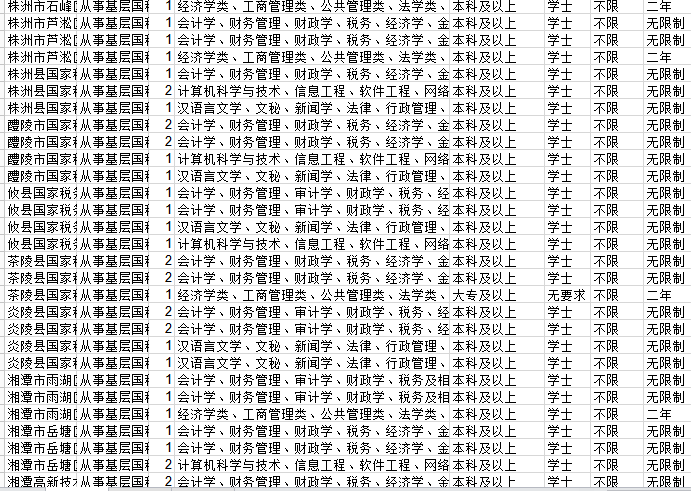 株洲市石峰 从事基层国 1 经济学类、工商管理类、公共管理类、法学类、 本科及以上 学士 不限 二年
株洲市芦淞 从事基层国 1 会计学、财务管理、财政学、税务、经济学、金 本科及以上 学士 不限 无限制
株洲市芦淞 从事基层国 1 会计学、财务管理、财政学、税务、经济学、金 本科及以上 学士 不限 无限制
株洲市芦淞 从事基层国 1 经济学类、工商管理类、公共管理类、法学类、 本科及以上 学士 不限 二年
株洲县国家 从事基层国 1 会计学、财务管理、财政学、税务、经济学、金 本科及以上 学士 不限 无限制
株洲县国家 从事基层国 2 计算机科学与技术、信息工程、软件工程、网络 本科及以上 学士 不限 无限制
株洲县国家 从事基层国 1 汉语言文学、文秘、新闻学、法律、行政管理、 本科及以上 学士 不限 无限制
醴陵市国家 从事基层国 2 会计学、财务管理、财政学、税务、经济学、金 本科及以上 学士 不限 无限制
醴陵市国家 从事基层国 2 会计学、财务管理、财政学、税务、经济学、金 本科及以上 学士 不限 无限制
醴陵市国家 从事基层国 1 计算机科学与技术、信息工程、软件工程、网络 本科及以上 学士 不限 无限制
醴陵市国家 从事基层国 1 汉语言文学、文秘、新闻学、法律、行政管理、 本科及以上 学士 不限 无限制
攸县国家税 从事基层国 1 会计学、财务管理、审计学、财政学、税务、经 本科及以上 学士 不限 无限制
攸县国家税 从事基层国 1 会计学、财务管理、审计学、财政学、税务、经 本科及以上 学士 不限 无限制
攸县国家税 从事基层国 1 汉语言文学、文秘、新闻学、法律、行政管理、 本科及以上 学士 不限 无限制
攸县国家税 从事基层国 1 计算机科学与技术、信息工程、软件工程、网络 本科及以上 学士 不限 无限制
茶陵县国家 从事基层国 2 会计学、财务管理、财政学、税务、经济学、金 本科及以上 学士 不限 无限制
茶陵县国家 从事基层国 2 会计学、财务管理、财政学、税务、经济学、金 本科及以上 学士 不限 无限制
茶陵县国家 从事基层国 1 经济学类、工商管理类、公共管理类、法学类、 大专及以上 无要求 不限 二年
炎陵县国家 从事基层国 2 会计学、财务管理、审计学、财政学、税务、经 本科及以上 学士 不限 无限制
炎陵县国家 从事基层国 2 会计学、财务管理、审计学、财政学、税务、经 本科及以上 学士 不限 无限制
炎陵县国家 从事基层国 1 汉语言文学、文秘、新闻学、法律、行政管理、 本科及以上 学士 不限 无限制
炎陵县国家 从事基层国 1 汉语言文学、文秘、新闻学、法律、行政管理、 本科及以上 学士 不限 无限制
湘潭市雨湖 从事基层国 1 会计学、财务管理、审计学、财政学、税务及相 本科及以上 学士 不限 无限制
湘潭市雨湖 从事基层国 1 会计学、财务管理、审计学、财政学、税务及相 本科及以上 学士 不限 无限制
湘潭市雨湖 从事基层国 1 经济学类、工商管理类、公共管理类、法学类、 本科及以上 学士 不限 二年
湘潭市岳塘 从事基层国 1 会计学、财务管理、财政学、税务、经济学、金 本科及以上 学士 不限 无限制
湘潭市岳塘 从事基层国 1 会计学、财务管理、财政学、税务、经济学、金 本科及以上 学士 不限 无限制
湘潭市岳塘 从事基层国 2 计算机科学与技术、信息工程、软件工程、网络 本科及以上 学士 不限 无限制
湘潭高新技 从事基层国 2 会计学、财务管理、财政学、税务、经济学、金 本科及以上 学士 不限 无限制